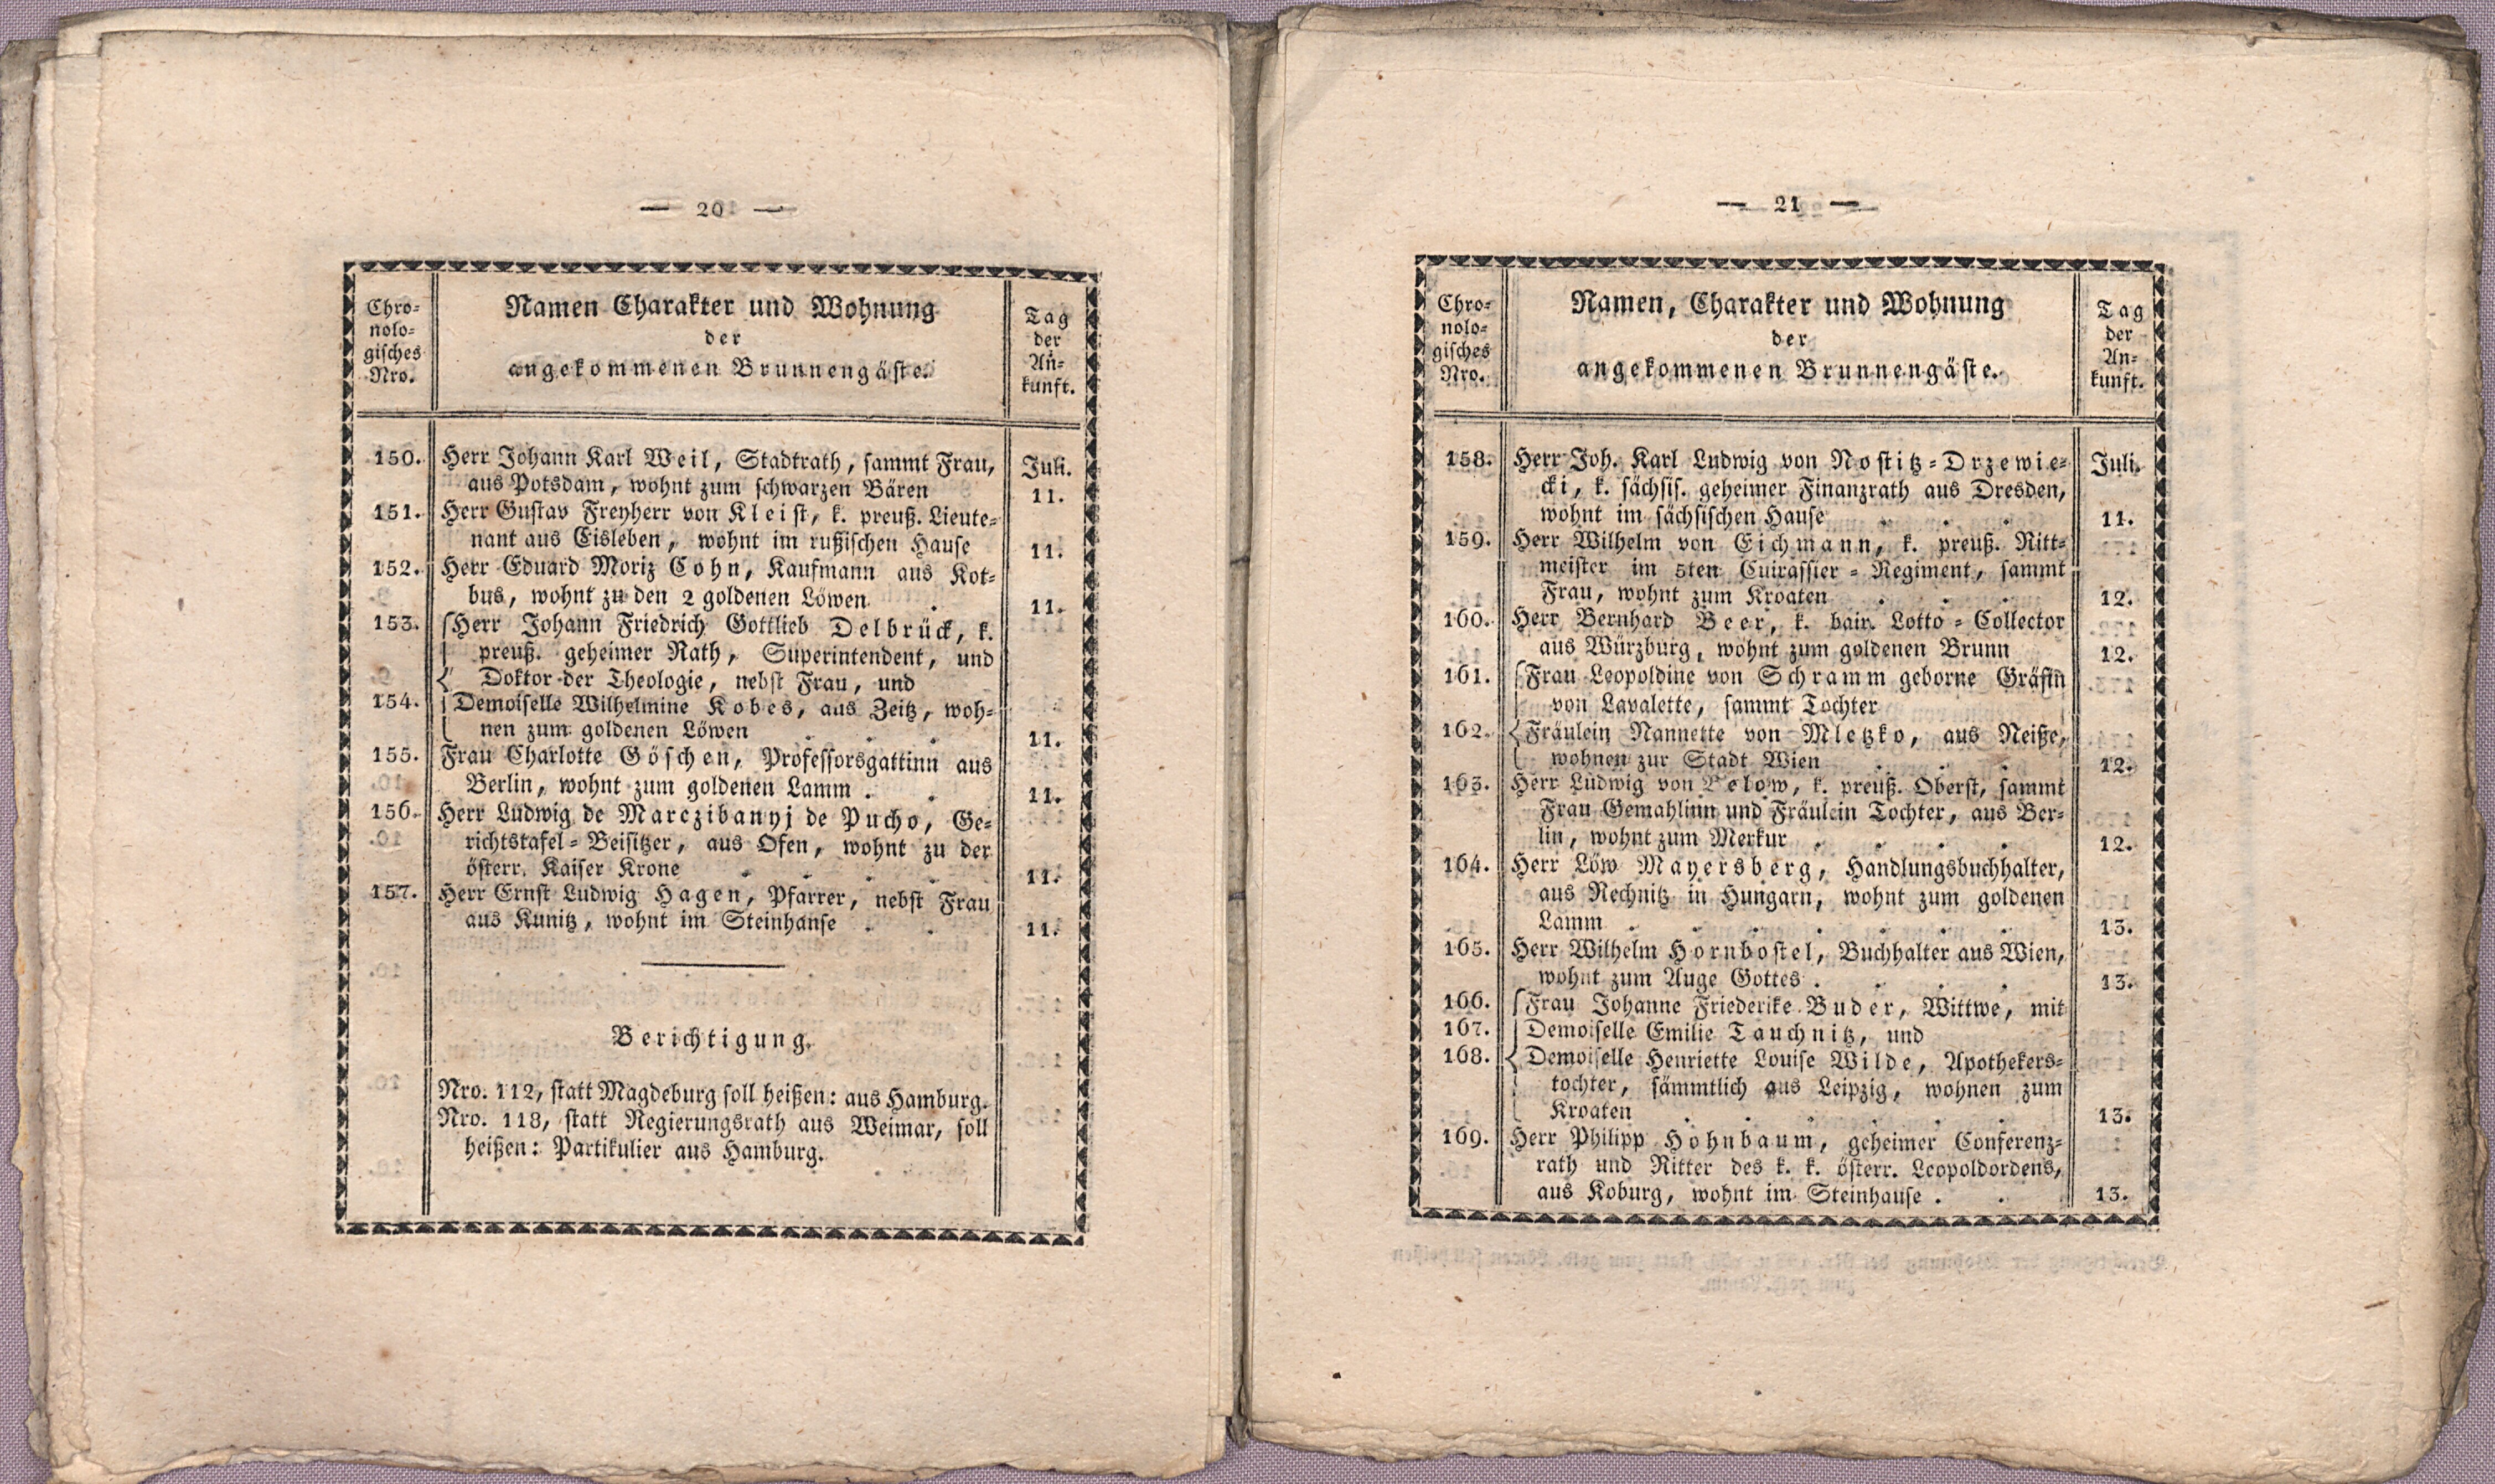 — 20 —
Chro-
nolo-
gisches
Nro.
Namen Charakter und Wohnung
der
angekommenen Brunnengäste.
Tag
der
An-
kunft.
150. Herr Johann Karl Weil, Stadtrath, sammt Frau, Juli.
aus Potsdam, wohnt zum schwarzen Bären 11.
151. Herr Gustav Freyherr von Kleist, k. preuß. Lieute-
nant aus Eisleben, wohnt im rußischen Hause 11.
152. Herr Eduard Moriz Cohn, Kaufmann aus Kot-
bus, wohnt zu den 2 goldenen Löwen . 11.
153. Herr Johann Friedrich Gottlieb Delbrück, k.
preuß. geheimer Rath, Superintendent, und
Doktor der Theologie, nebst Frau, und
154. Demoiselle Wilhelmine Kobes, aus Zeitz, woh-
nen zum goldenen Löwen . . . 11.
155. Frau Charlotte Göschen, Professorsgattinn aus
Berlin, wohnt zum goldenen Lamm . . 11.
156. Herr Ludwig de Marczibanyj de Pucho, Ge-
richtstafel-Beisitzer, aus Ofen, wohnt zu der
österr. Kaiser Krone . . . . 11.
157. Herr Ernst Ludwig Hagen, Pfarrer, nebst Frau
aus Kunitz, wohnt im Steinhause . . 11.
Berichtigung.
Nro. 112, statt Magdeburg soll heißen: aus Hamburg.
Nro. 113, statt Regierungsrath aus Weimar, soll
heißen: Partikulier aus Hamburg.
— 21 —
Chro-
nolo-
gisches
Nro.
Namen, Charakter und Wohnung
der
angekommenen Brunnengäste.
Tag
der
An-
kunft.
158. Herr Joh. Karl Ludwig von Nostitz-Drzewie- Juli.
cki, k. sächsis. geheimer Finanzrath aus Dresden,
wohnt im sächsischen Hause . . . 11.
159. Herr Wilhelm von Eichmann, k. preuß. Ritt-
meister im 5ten Cuirassier-Regiment, sammt
Frau, wohnt zum Kroaten . . . 12.
160. Herr Bernhard Beer, k. bair. Lotto-Collector
aus Würzburg, wohnt zum goldenen Brunn 12.
161. Frau Leopoldine von Schramm geborne Gräfin
von Lavalette, sammt Tochter
162. Fräulein Nannette von Mletzko, aus Neiße,
wohnen zur Stadt Wien . . . 12.
163. Herr Ludwig von Below, k. preuß. Oberst, sammt
Frau Gemahlinn und Fräulein Tochter, aus Ber-
lin, wohnt zum Merkur . . . . 12.
164. Herr Löw Mayersberg, Handlungsbuchhalter,
aus Rechnitz in Hungarn, wohnt zum goldenen
Lamm . . . . . . . 13.
165. Herr Wilhelm Hornbostel, Buchhalter aus Wien,
wohnt zum Auge Gottes . . . . 13.
166. Frau Johanne Friederike Buder, Wittwe, mit
167. Demoiselle Emilie Tauchnitz, und
168. Demoiselle Henriette Louise Wilde, Apothekers-
tochter, sämmtlich aus Leipzig, wohnen zum
Kroaten . . . . . . 13.
169. Herr Philipp Hohnbaum, geheimer Conferenz-
rath und Ritter des k. k. österr. Leopoldordens,
aus Koburg, wohnt im Steinhause . . 13.